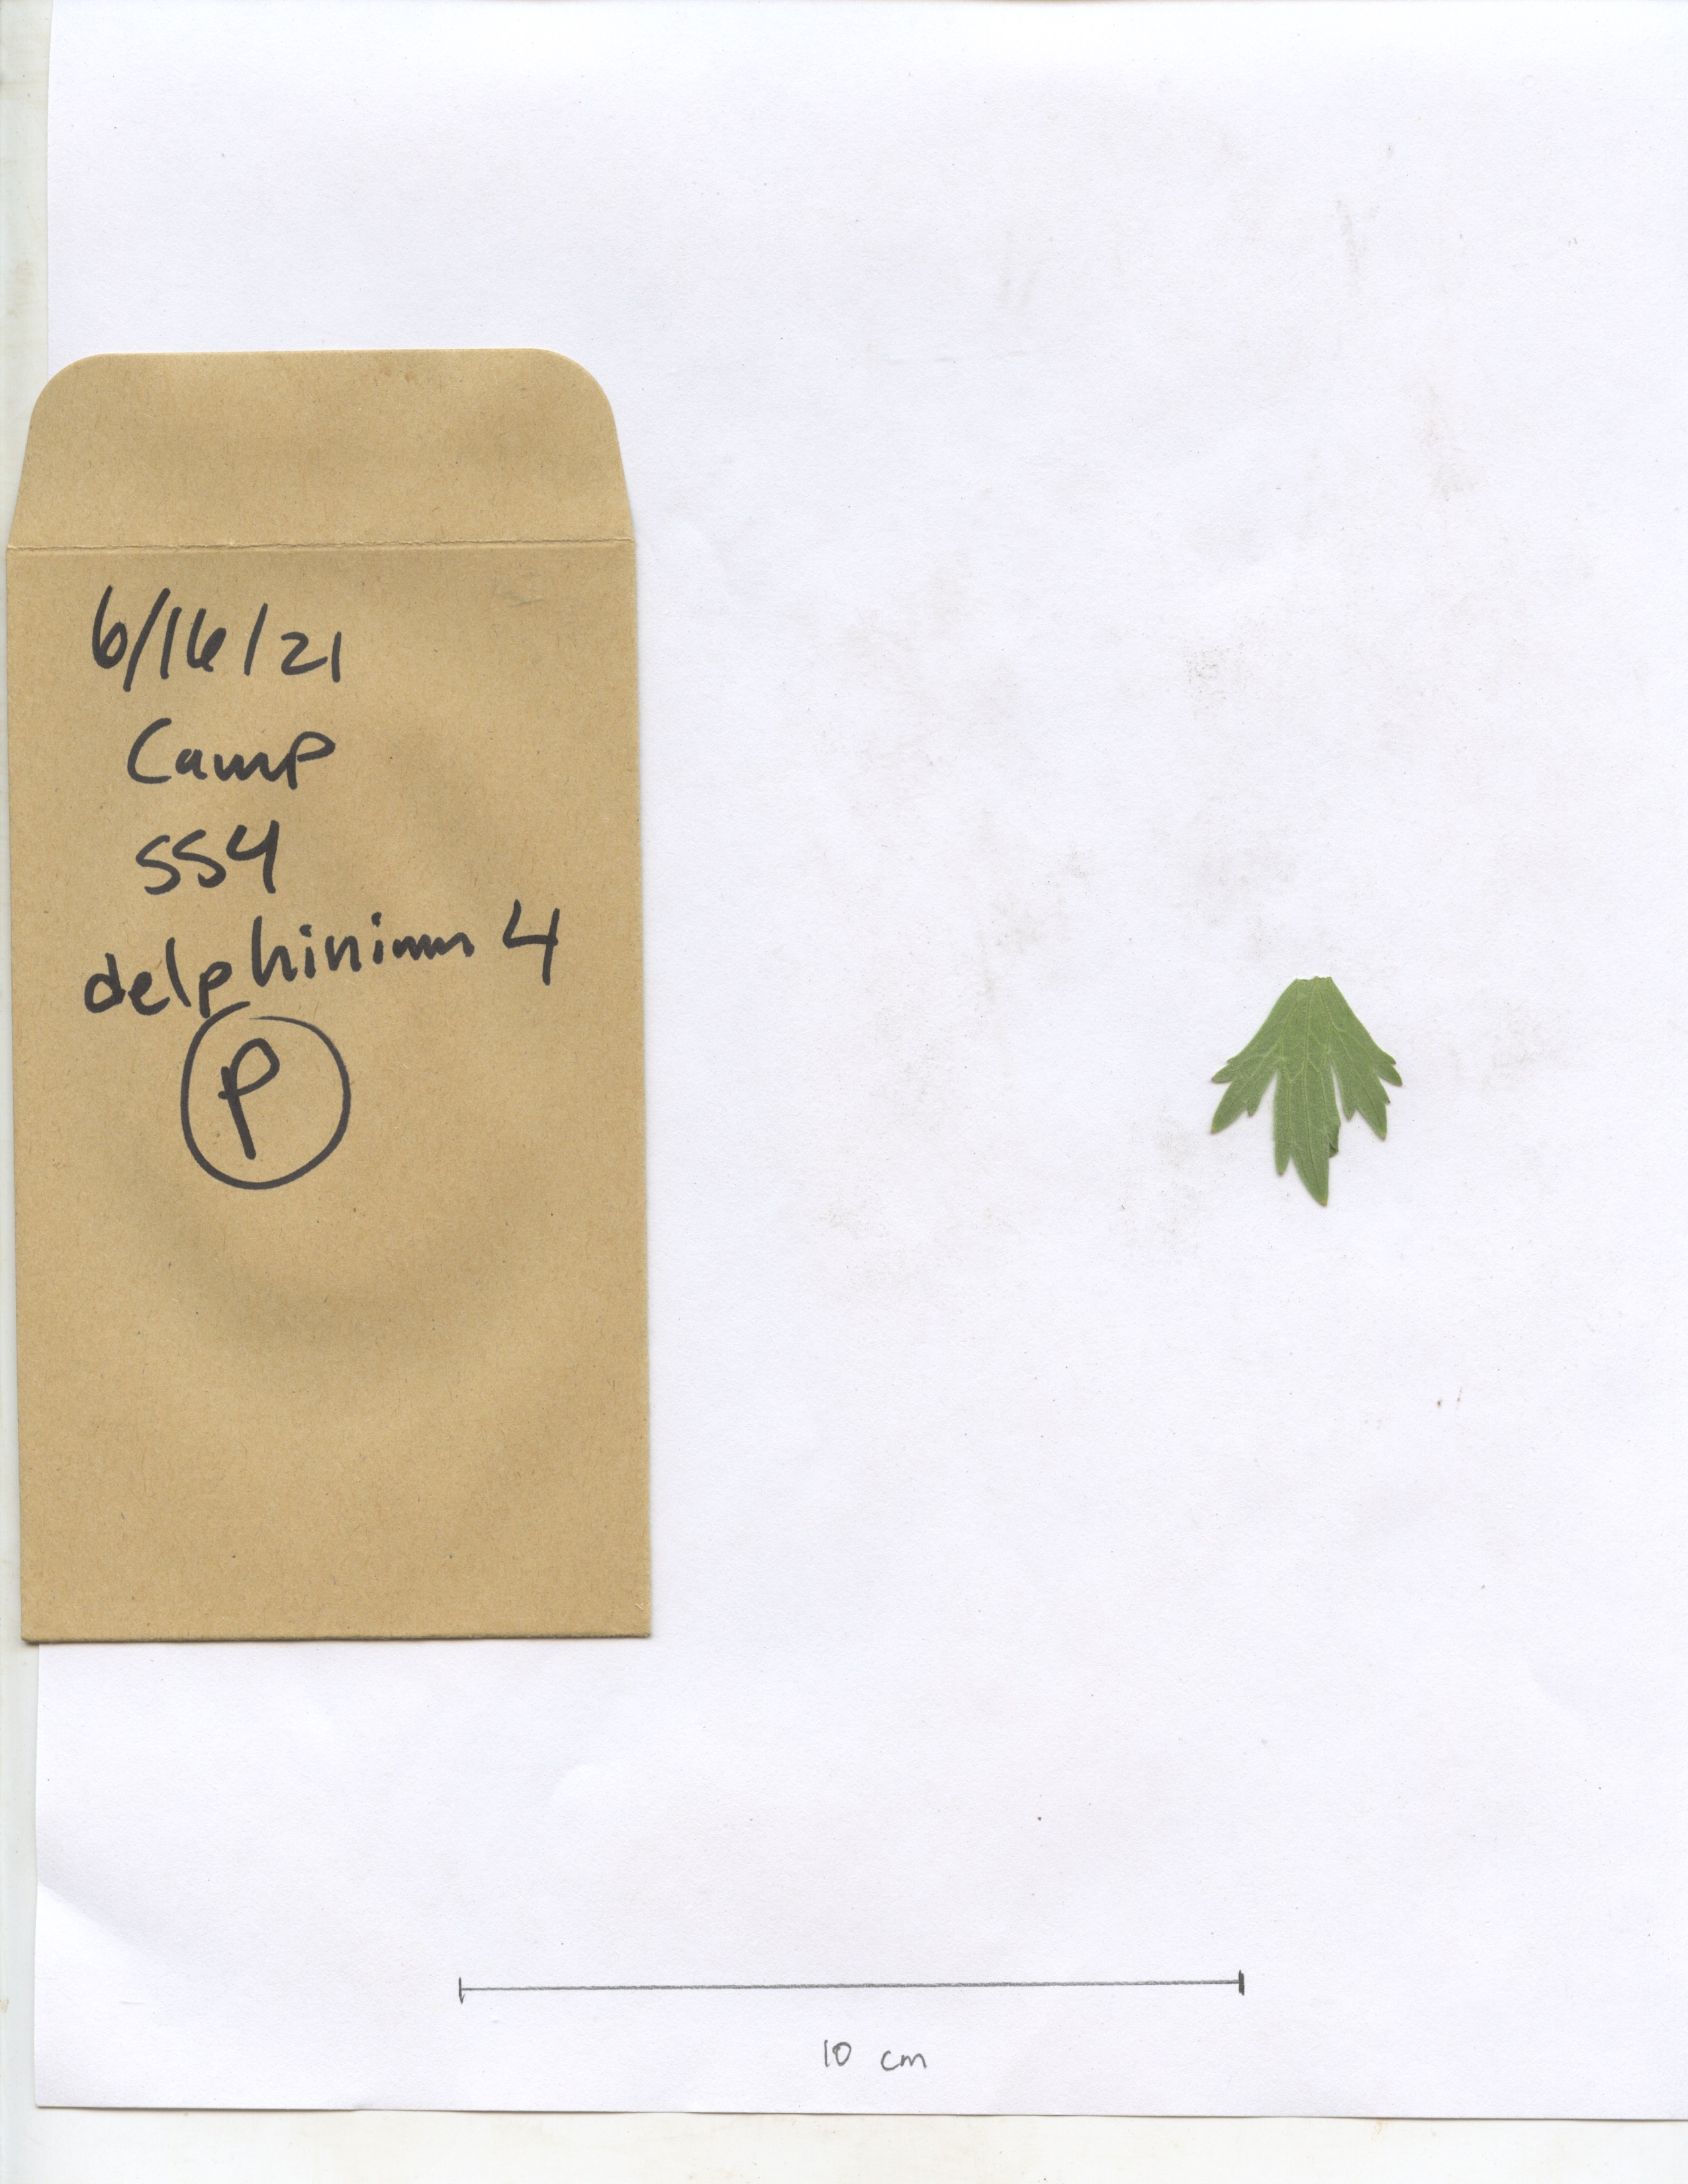 6/16/21
Camp
SS4
delphinium 4
P
10 cm